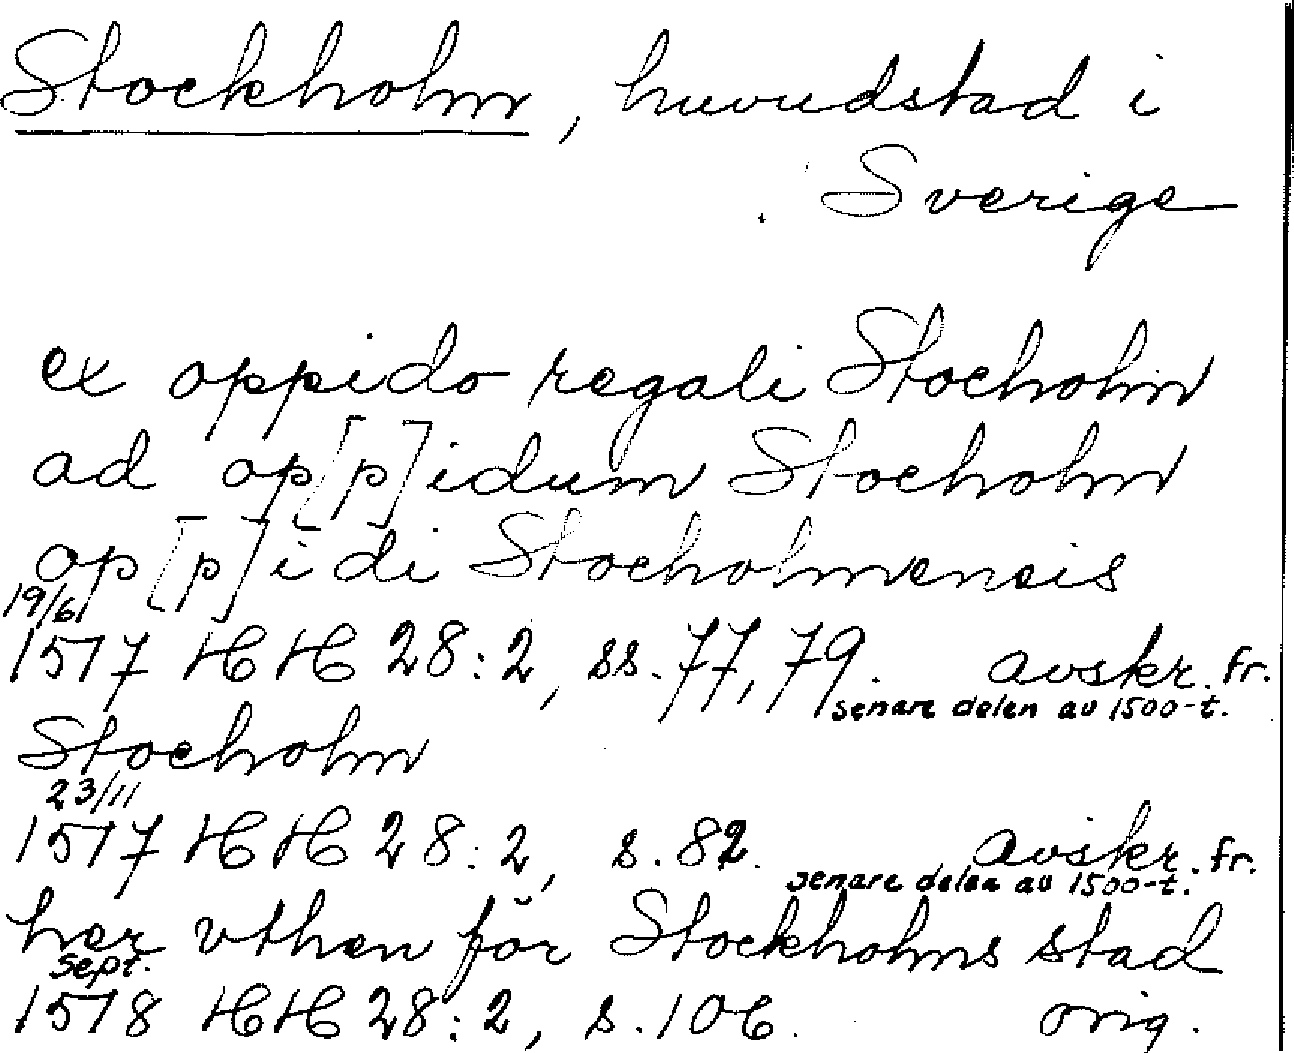 Stockholm, huvudstad i
Sverige
ex oppido regali Stocholm
ad op[p]idum Stocholm
op[p]idi Stocholmensis
19/6
1517 HH 28:2, ss. 77, 79. avskr. fr.
senare delen av 1500-t.
Stocholm
23/11
1517 HH 28:2, s. 82. avskr. fr.
senare delen av 1500-t.
her vthen för Stockholms stad
Sept.
1518 HH 28:2, s. 106. orig.